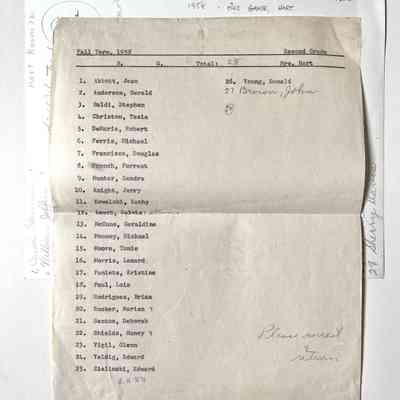 1958 - 2ND GRADE, HART
Fall Term, 1958 Second Grade
B. G. Total: 28 Mrs. Hart
1. Abbott, Jean
2. Anderson, Gerald
3. Baldi, Stephen
4. Christon, Tasia
5. DeMaris, Robert
6. Ferris, Michael
7. Francisco, Douglas
8. French, Forrest
9. Hunter, Sandra
10. Knight, Jerry
11. Kowalski, Kathy
12.
13. McClune, Geraldine
14. Mooney, Michael
15. Moore, Tonie
16. Morris, Lenard
17. Paulots, Kristine
18. Paul, Lois
19. Rodriguez, Brian
20. Rucker, Marion
21. Saxton, Deborah
22. Shields, Nancy
23. Vigil, Glenn
24. Valdig, Edward
25. Zielinski, Edward
26. Young, Donald
27 Brown, John
28
Please correct
& return
28 Sherry